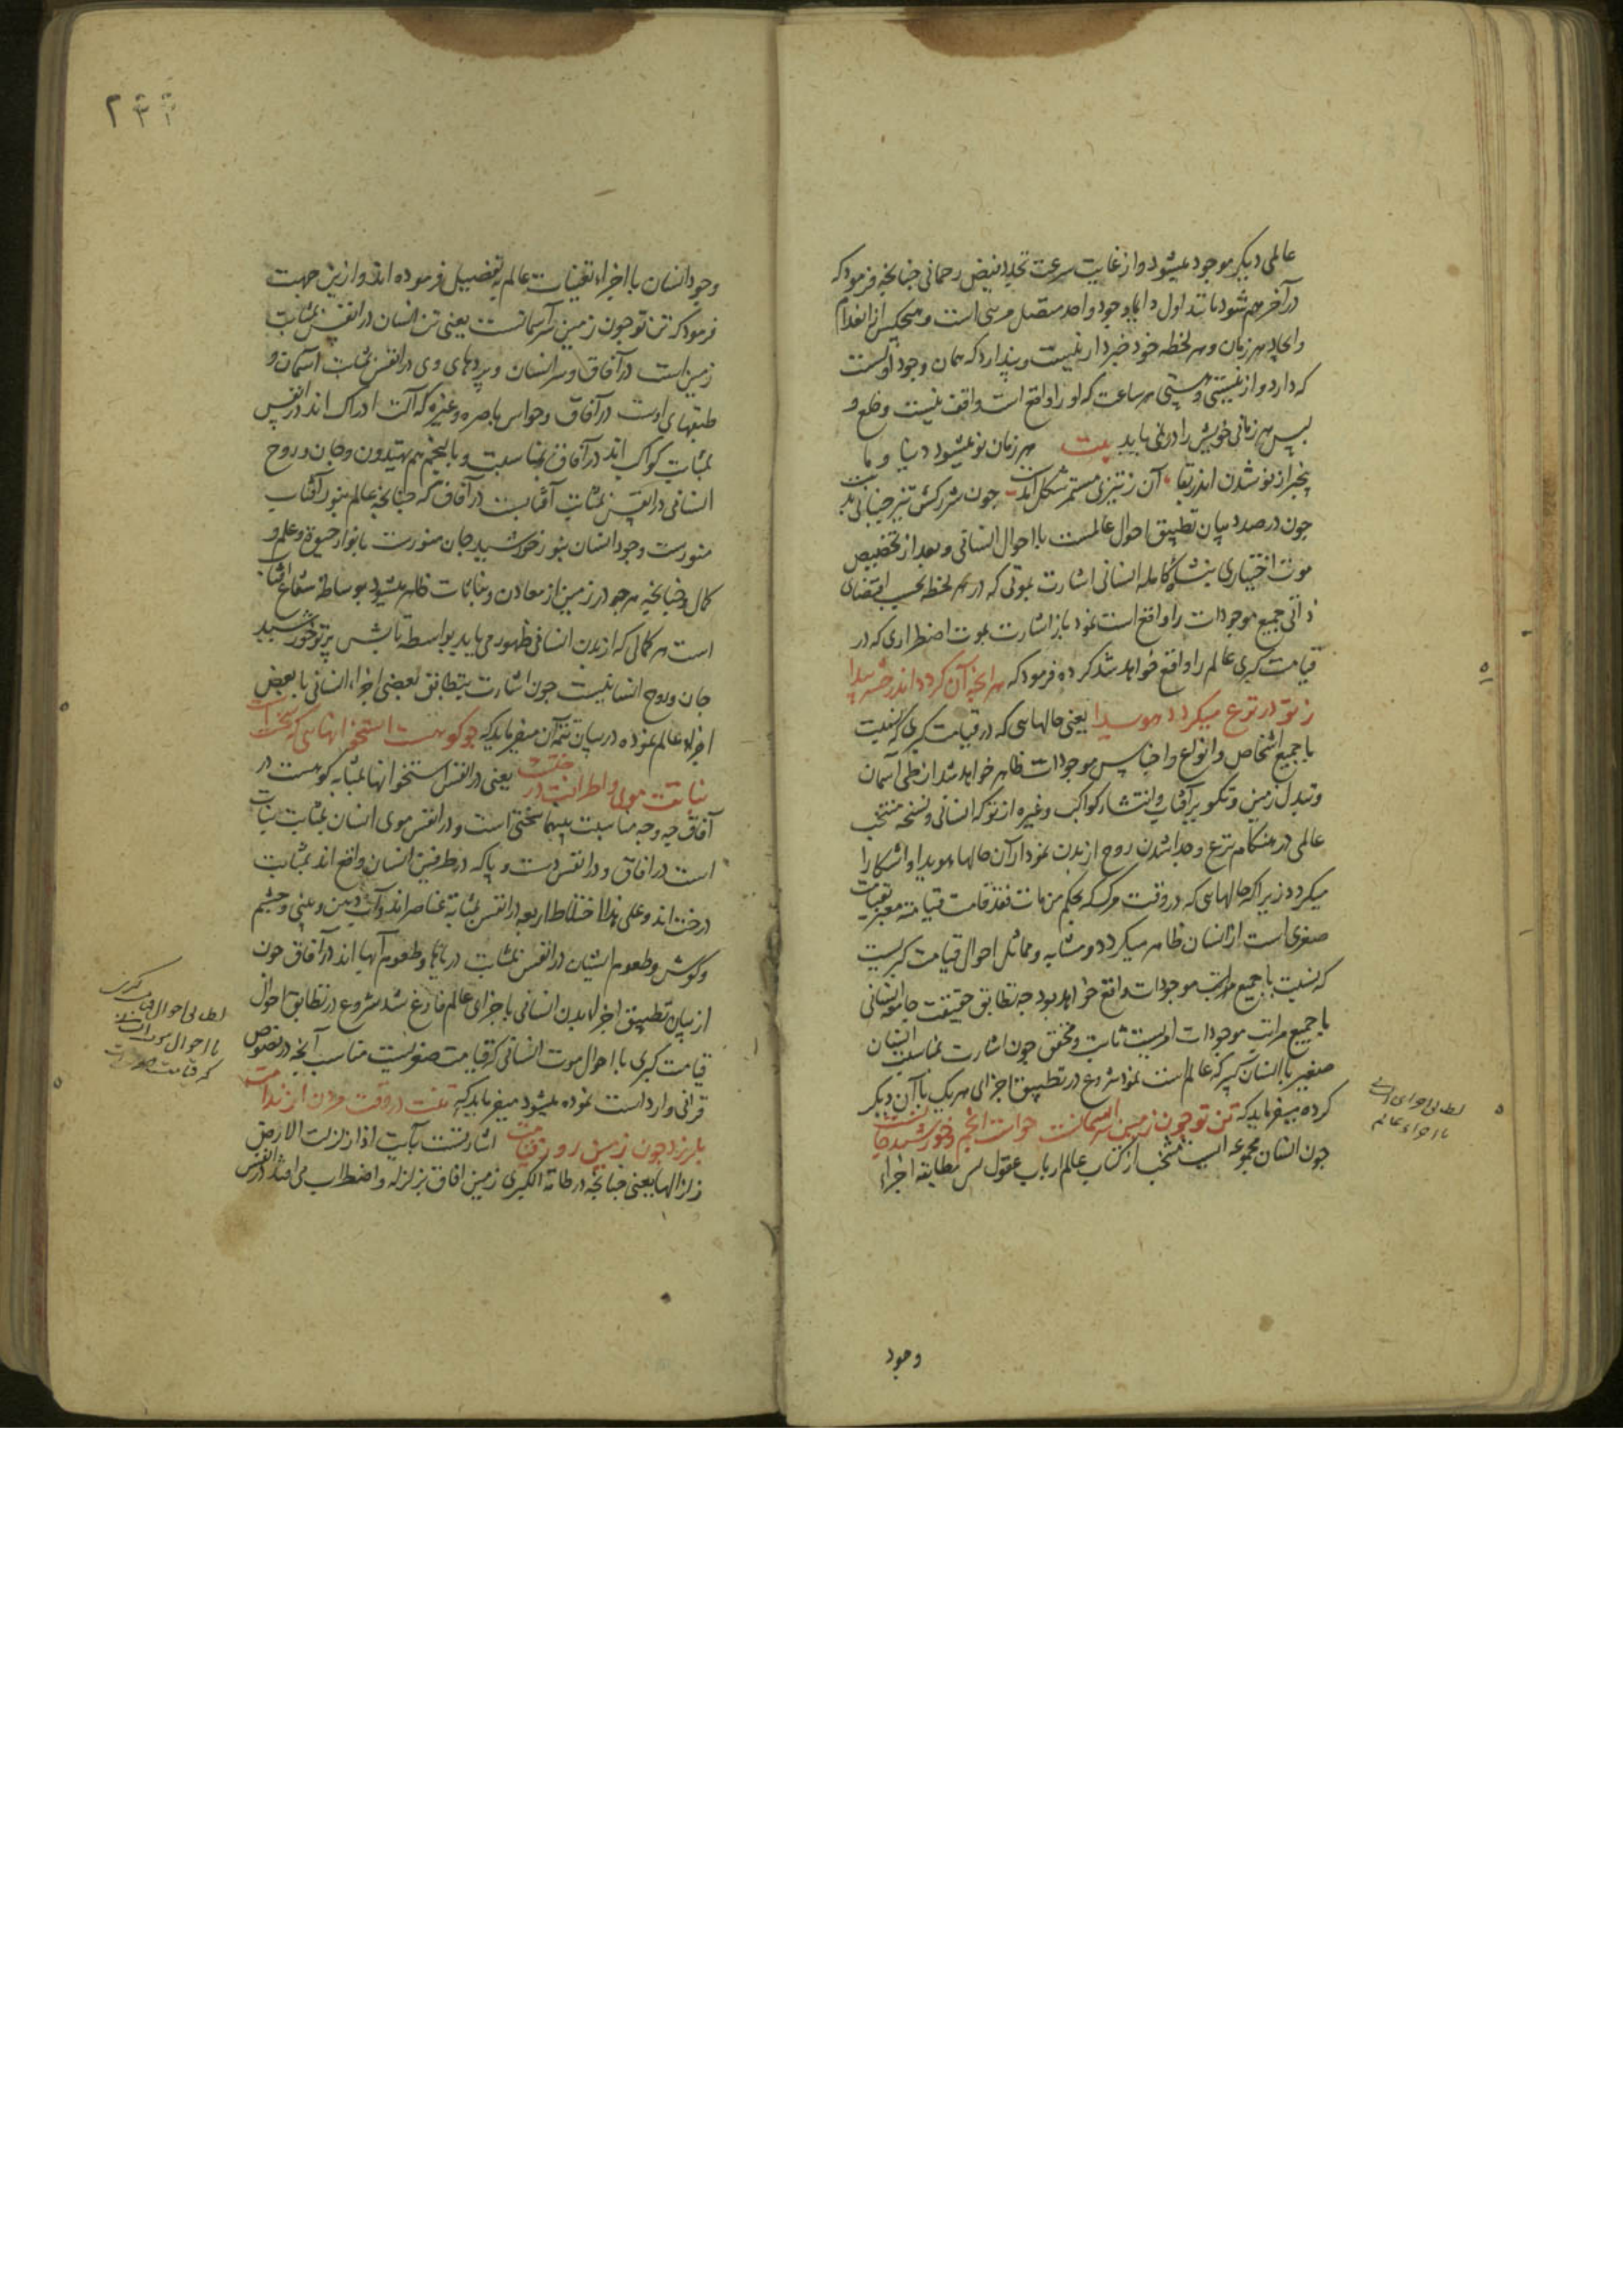 عالمی دیگر موجود میشود و از غایت سرعت تجدید فیض رحمانی چنانچه فرمود که
در آخر هم شود مانند اول اما وجود واحد متصل مرئی است و هیچکس از انعدام
و ایجاد هر زمان و هر لحظه خود خبردار نیست و پندارد که همان وجود اولست
که دارد و از نیستی و هستی هر ساعت که او را واقع است واقف نیست و خلع و
لبس هر زمانی خویش را در نمی یابد بیت هر زمان نو میشود دنیا و ما
بیخبر از نو شدن اندر بقا آن ز تیزی مستمر شکل آمدست چون شرر کش تیز جنبانی بدست
چون در صدد بیان تطبیق احوال عالمست با احوال انسانی و بعد از تخصیص
موت اختیاری بنشاء کامله انسانی اشارت بموتی که در هر لحظه بحسب اقتضای
ذاتی جمیع موجودات را واقع است نمود باز اشارت بموت اضطراری که در
قیامت کبری عالم را واقع خواهد شد کرده فرمود که هر آنچه آن گردد اندر حشر پیدا
ز تو در نزع میگردد هویدا یعنی حالهائی که در قیامت کبری که نسبت
با جمیع اشخاص و انواع و اجناس موجودات ظاهر خواهد شد از طی آسمان
و تبدل زمین و تکویر آفتاب و انتشار کواکب و غیره از تو که انسانی و نسخه منتخب
عالمی در هنگام نزع و جدا شدن روح از بدن نمودار آن حالها هویدا و آشکارا
میگردد زیرا که حالهائی که در وقت مرگ که بحکم من مات فقد قامت قیامته معبر بقیامت
صغری است از انسان ظاهر میگردد و مشابه و مماثل احوال قیامت کبریست
که نسبت با جمیع مراتب موجودات واقع خواهد بود چه تطابق حقیقت جامعه انسانی
با جمیع مراتب موجودات امریست ثابت و محقق چون اشارت بمناسبت انسان
صغیر با انسان کبیر که عالم است نمود شروع در تطبیق اجزای هر یک با آن دیگر
کرده میفرماید که تن تو چون زمین سر آسمانست حواست انجم و خورشید جانست
چون انسان مجموعه ایست منتخب از کتاب عالم ارباب عقول مطابقه اجزاء
وجود
وجود انسان با اجزاء تعینات عالم بتفصیل فرموده اند و از این جهت
فرمود که تن تو چون زمین سر آسمانست یعنی تن انسان در انفس بمثابت
زمین است در آفاق و سر انسان و پردهای وی در انفس بمثابت آسمان و
طبقهای اوست در آفاق و حواس باصره و غیره که آلت ادراک اند در انفس
بمثابت کواکب اند در آفاق بمناسبت و بالنجم هم یهتدون و جان و روح
انسانی در انفس بمثابت آفتابست در آفاق که چنانچه عالم بنور آفتاب
منورست وجود انسان بنور خورشید جان منورست بانوار حیوة و علم و
کمال و چنانچه هر چه در زمین از معادن و نباتات ظاهر میشود بوساطه شعاع آفتاب
است هر کمالی که از بدن انسانی ظهور می یابد بواسطه تابش پرتو خورشید
جان و روح انسانیست چون اشارت بتطابق بعضی اجزاء انسانی با بعض
اجزاء عالم نموده در بیان تتمه آن میفرماید که چو کوهست استخوانهائی که سختست
نباتت موی و اطرافت درختست یعنی در انفس استخوانها بمثابه کوهست در
آفاق چه وجه مناسبت بینهما سختی است و در انفس موی انسان بمثابت نبات
است در آفاق و در انفس دست و پا که در طرفین انسان واقع اند بمثابت
درخت اند و علی هذا اختلاط اربعه در انفس بمثابه عناصر اند و آب دهن و بینی و چشم
و گوش و طعوم ایشان در انفس بمثابت دریاها و طعوم آبها اند در آفاق چون
از بیان تطبیق اجزاء بدن انسانی با جزای عالم فارغ شد شروع در تطابق احوال
قیامت کبری با احوال موت انسانی که قیامت صغریست مناسب آنچه در نصوص
قرآنی وارد است نموده میشود میفرماید که تنت در وقت مردن از ندامت
بلرزد چون زمین روز قیامت اشارتست بآیت اذا زلزلت الارض
زلزالها یعنی چنانچه در طامة الکبری زمین آفاق بزلزله و اضطراب می افتد در انفس